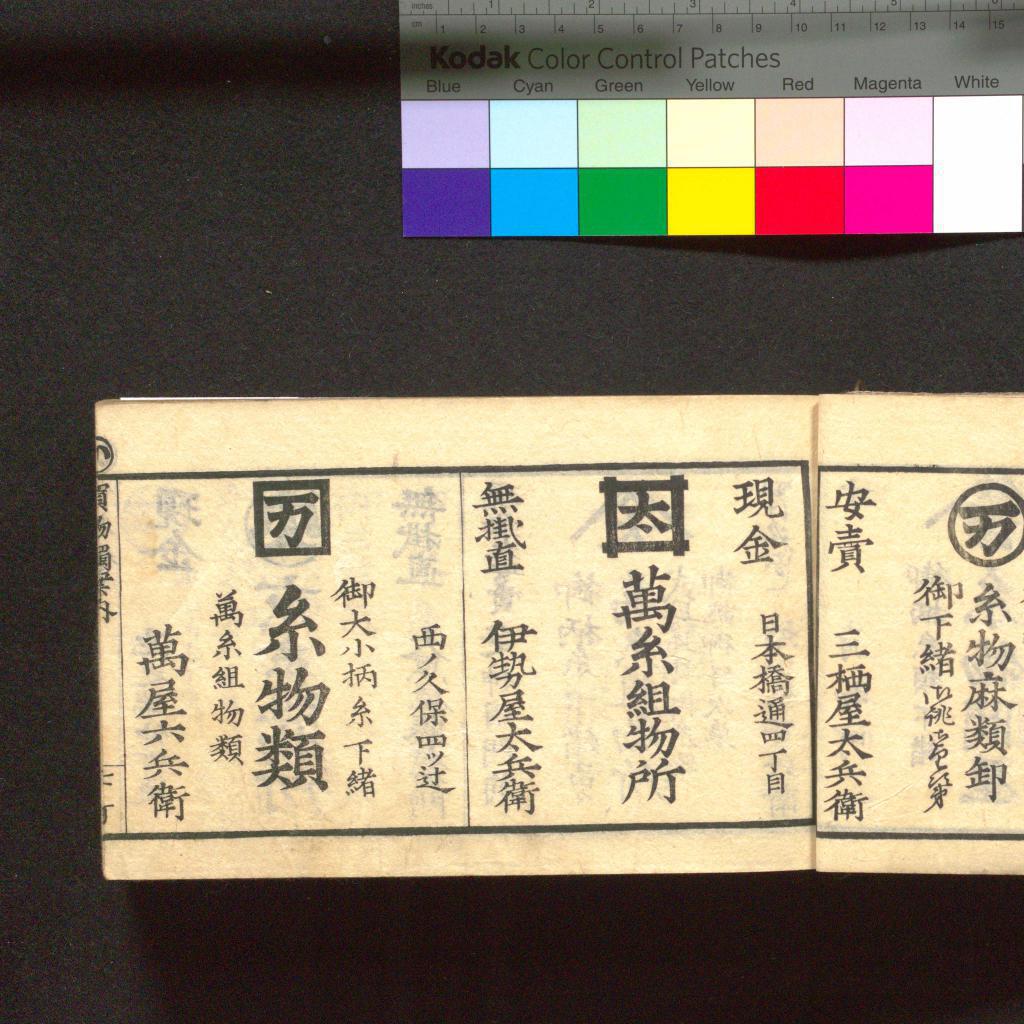 inches 1 2 3 4 5 6
cm 1 2 3 4 5 6 7 8 9 10 11 12 13 14 15
Kodak Color Control Patches
Blue Cyan Green Yellow Red Magenta White
万
糸物麻類卸
御下緒
安賣
三栖屋太兵衛
現金
日本橋通四丁目
太
萬糸組物所
無掛直
伊勢屋太兵衛
西ノ久保四ッ辻
御大小柄糸下緒
万
糸物類
萬糸組物類
萬屋六兵衛